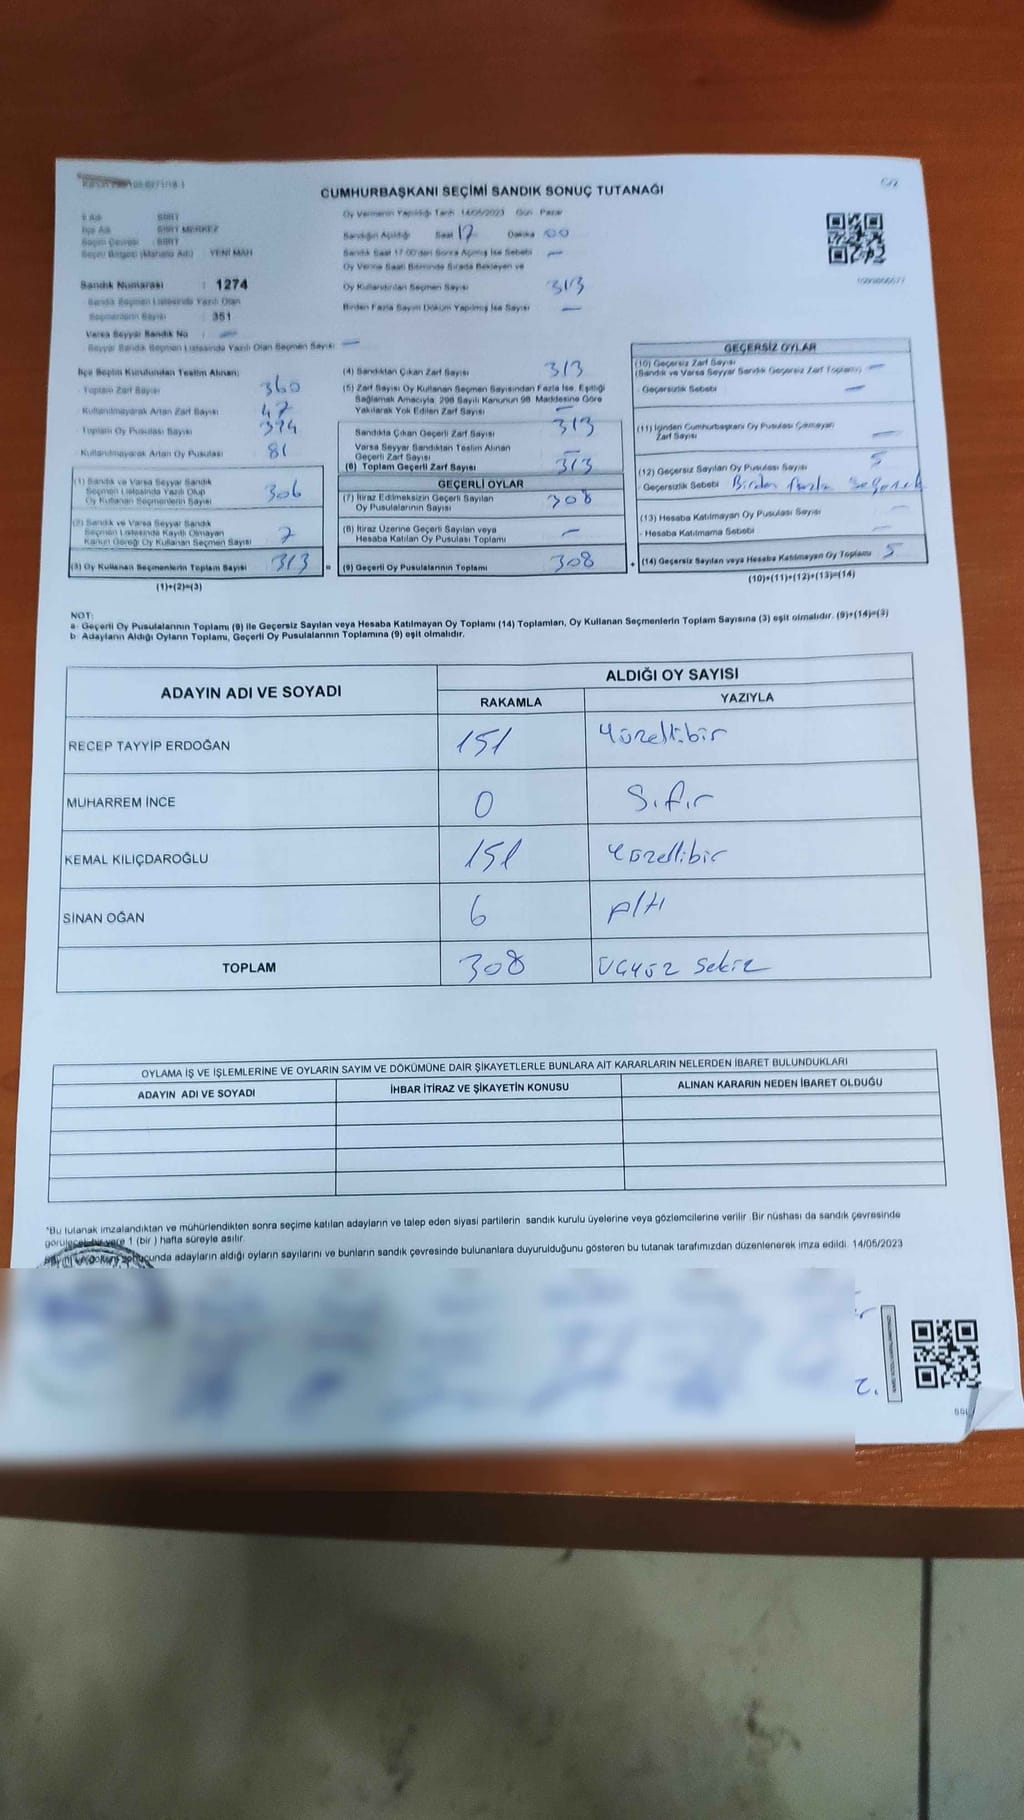 CUMHURBAŞKANI SEÇİMİ SANDIK SONUÇ TUTANAĞI
İl Adı : SİİRT
İlçe Adı : SİİRT MERKEZ
Seçim Çevresi : SİİRT
Seçim Bölgesi (Mahalle Adı) : YENİ MAH
Sandık Numarası : 1274
Sandık Seçmen Listesinde Yazılı Olan
Seçmenlerin Sayısı : 351
Varsa Seyyar Sandık No : —
Seyyar Sandık Seçmen Listesinde Yazılı Olan Seçmen Sayısı : —
Oy Vermenin Yapıldığı Tarih 14/05/2023 Gün Pazar
Sandığın Açıldığı Saat 17 Dakika 00
Sandık Saat 17:00'dan Sonra Açılmış İse Sebebi —
Oy Verme Saati Bitiminde Sırada Bekleyen ve
Oy Kullandırılan Seçmen Sayısı 313
Birden Fazla Sayım Döküm Yapılmış İse Sayısı —
İlçe Seçim Kurulundan Teslim Alınan:
Toplam Zarf Sayısı 360
Kullanılmayarak Artan Zarf Sayısı 47
Toplam Oy Pusulası Sayısı 394
Kullanılmayarak Artan Oy Pusulası 81
(1) Sandık ve Varsa Seyyar Sandık
Seçmen Listesinde Yazılı Olup
Oy Kullanan Seçmenlerin Sayısı 306
(2) Sandık ve Varsa Seyyar Sandık
Seçmen Listesinde Kayıtlı Olmayan
Kanun Gereği Oy Kullanan Seçmen Sayısı 7
(3) Oy Kullanan Seçmenlerin Toplam Sayısı 313
(1)+(2)=(3)
(4) Sandıktan Çıkan Zarf Sayısı 313
(5) Zarf Sayısı Oy Kullanan Seçmen Sayısından Fazla İse, Eşitliği
Sağlamak Amacıyla, 298 Sayılı Kanunun 98. Maddesine Göre
Yakılarak Yok Edilen Zarf Sayısı —
Sandıkta Çıkan Geçerli Zarf Sayısı 313
Varsa Seyyar Sandıktan Teslim Alınan
Geçerli Zarf Sayısı —
(6) Toplam Geçerli Zarf Sayısı 313
GEÇERLİ OYLAR
(7) İtiraz Edilmeksizin Geçerli Sayılan
Oy Pusulalarının Sayısı 308
(8) İtiraz Üzerine Geçerli Sayılan veya
Hesaba Katılan Oy Pusulası Toplamı —
= (9) Geçerli Oy Pusulalarının Toplamı 308
GEÇERSİZ OYLAR
(10) Geçersiz Zarf Sayısı
(Sandık ve Varsa Seyyar Sandık Geçersiz Zarf Toplamı) —
- Geçersizlik Sebebi —
(11) İçinden Cumhurbaşkanı Oy Pusulası Çıkmayan
Zarf Sayısı —
(12) Geçersiz Sayılan Oy Pusulası Sayısı 5
- Geçersizlik Sebebi Birden fazla seçenek
(13) Hesaba Katılmayan Oy Pusulası Sayısı —
- Hesaba Katılmama Sebebi —
+ (14) Geçersiz Sayılan veya Hesaba Katılmayan Oy Toplamı 5
(10)+(11)+(12)+(13)=(14)
NOT:
a- Geçerli Oy Pusulalarının Toplamı (9) ile Geçersiz Sayılan veya Hesaba Katılmayan Oy Toplamı (14) Toplamları, Oy Kullanan Seçmenlerin Toplam Sayısına (3) eşit olmalıdır. (9)+(14)=(3)
b- Adayların Aldığı Oyların Toplamı, Geçerli Oy Pusulalarının Toplamına (9) eşit olmalıdır.
ADAYIN ADI VE SOYADI ALDIĞI OY SAYISI
RAKAMLA YAZIYLA
RECEP TAYYİP ERDOĞAN 151 Yüzellibir
MUHARREM İNCE 0 Sıfır
KEMAL KILIÇDAROĞLU 151 Yüzellibir
SİNAN OĞAN 6 Altı
TOPLAM 308 Üçyüz Sekiz
OYLAMA İŞ VE İŞLEMLERİNE VE OYLARIN SAYIM VE DÖKÜMÜNE DAİR ŞİKAYETLERLE BUNLARA AİT KARARLARIN NELERDEN İBARET BULUNDUKLARI
ADAYIN ADI VE SOYADI İHBAR İTİRAZ VE ŞİKAYETİN KONUSU ALINAN KARARIN NEDEN İBARET OLDUĞU
*Bu tutanak imzalandıktan ve mühürlendikten sonra seçime katılan adayların ve talep eden siyasi partilerin sandık kurulu üyelerine veya gözlemcilerine verilir. Bir nüshası da sandık çevresinde
görülecek bir yere 1 (bir) hafta süreyle asılır.
Sayım ve döküm sonucunda adayların aldığı oyların sayılarını ve bunların sandık çevresinde bulunanlara duyurulduğunu gösteren bu tutanak tarafımızdan düzenlenerek imza edildi. 14/05/2023